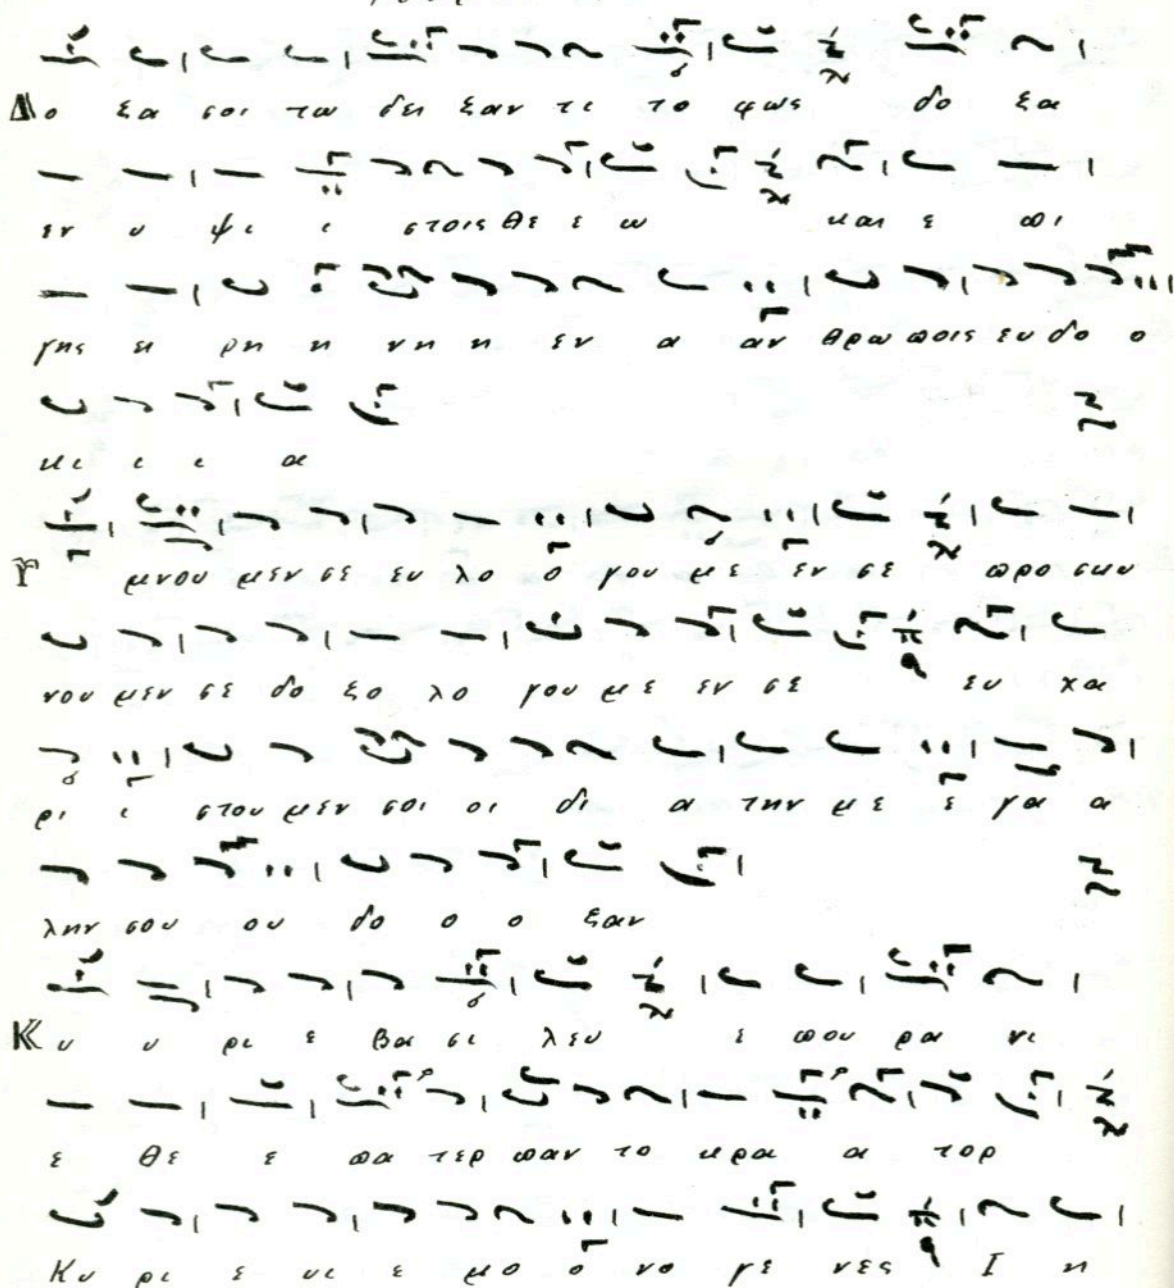 Δο ξα σοι τω δει ξαν τι το φως δο ξα
εν υ ψι ι στοις θε ε ω και ε πι
γης ει ρη η νη η εν α αν θρω ποις ευ δο ο
κι ι ι α
Υ μνου μεν σε ευ λο ο γου με εν σε προ σκυ
νου μεν σε δο ξο λο γου με εν σε ευ χα
ρι ι στου μεν σοι οι δι α την με ε γα α
λην σου ου δο ο ο ξαν
Κυ υ ρι ε βα σι λευ ε που ρα νι
ε θε ε πα τερ παν το κρα α τορ
Κυ ρι ε υι ε μο ο νο γε νες Ι η